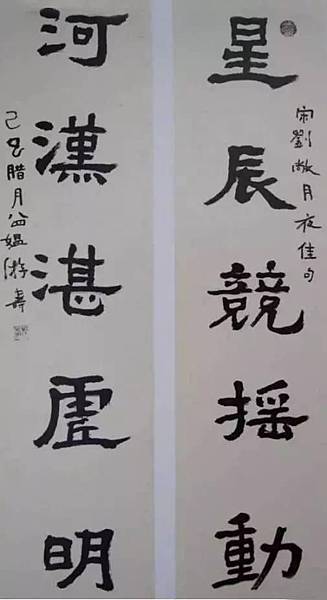 星辰競搖動
宋劉敞月夜佳句
河漢湛虛明
己巳臘月 游壽